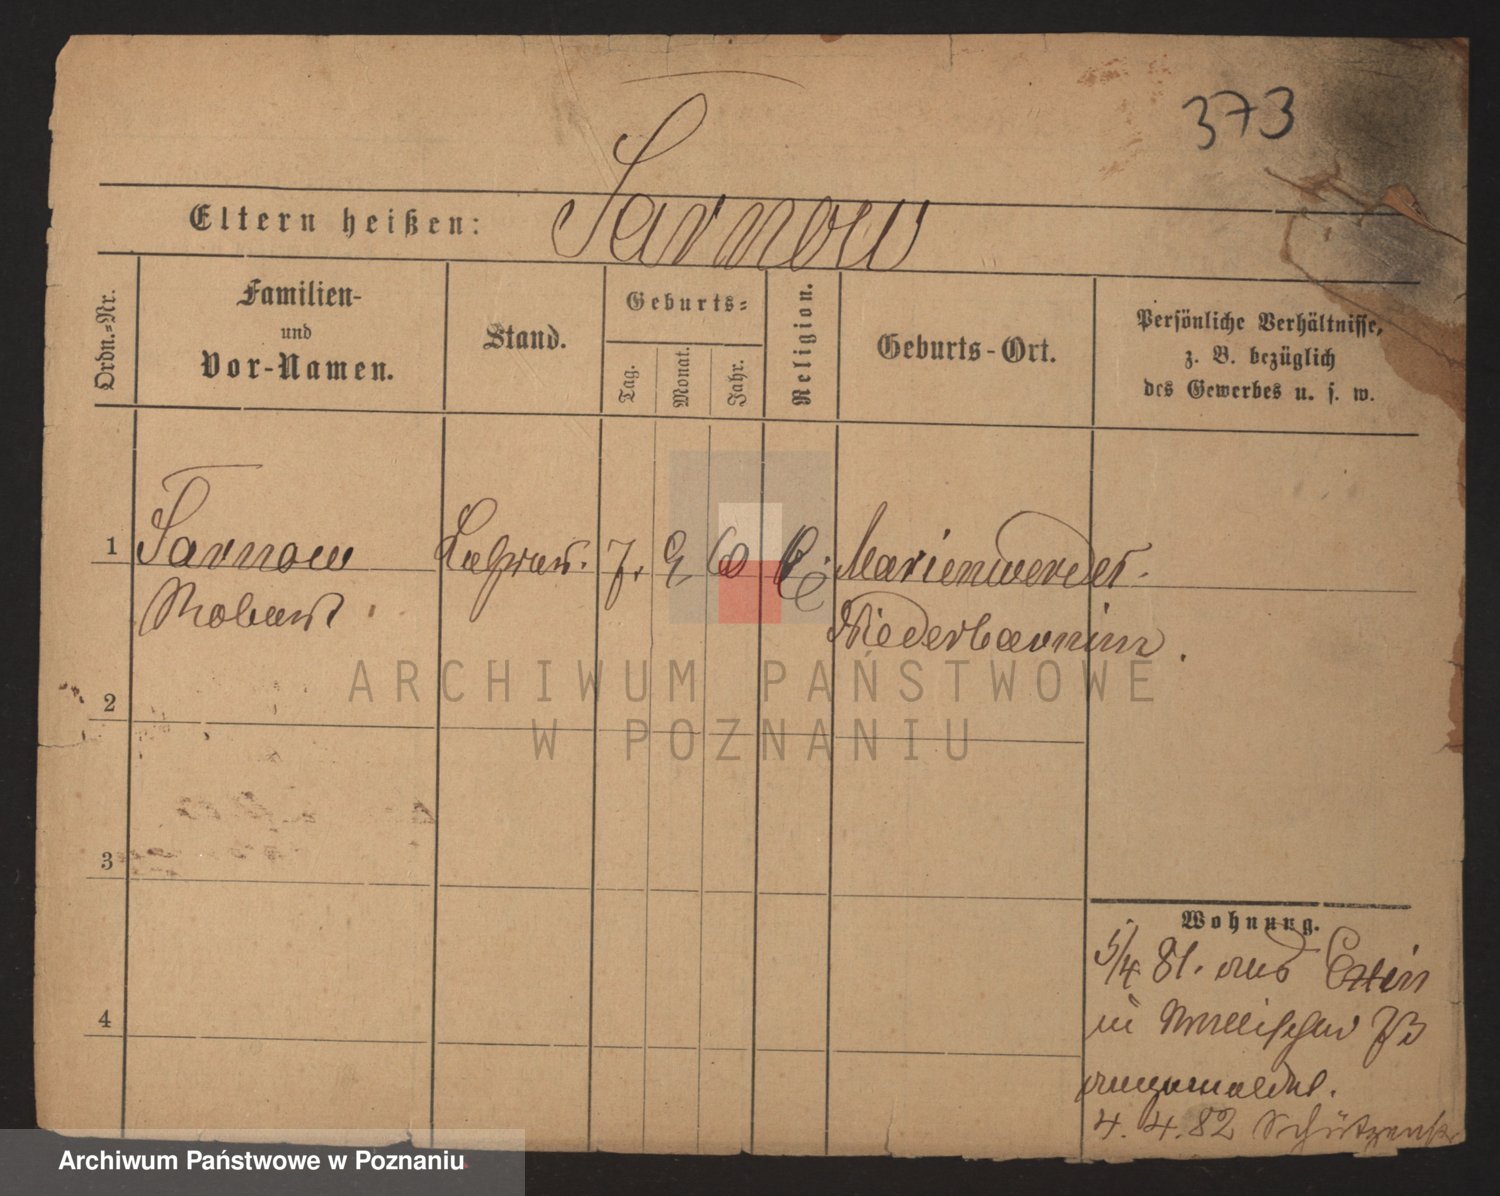 373
Eltern heißen: Sarnow
Ordn.-Nr.
Familien-
und
Vor-Namen.
Stand.
Geburts-
Tag.
Monat.
Jahr.
Religion.
Geburts-Ort.
Persönliche Verhältnisse,
z. B. bezüglich
des Gewerbes u. s. w.
1 Sarnow 7. 9 60 Marienwerder
Robert Niederbarnim.
2
3
4
Wohnung.
5/4 81. aus
in
angemeldet.
4. 4. 82 Schützenstr
ARCHIWUM PAŃSTWOWE
W POZNANIU
Archiwum Państwowe w Poznaniu